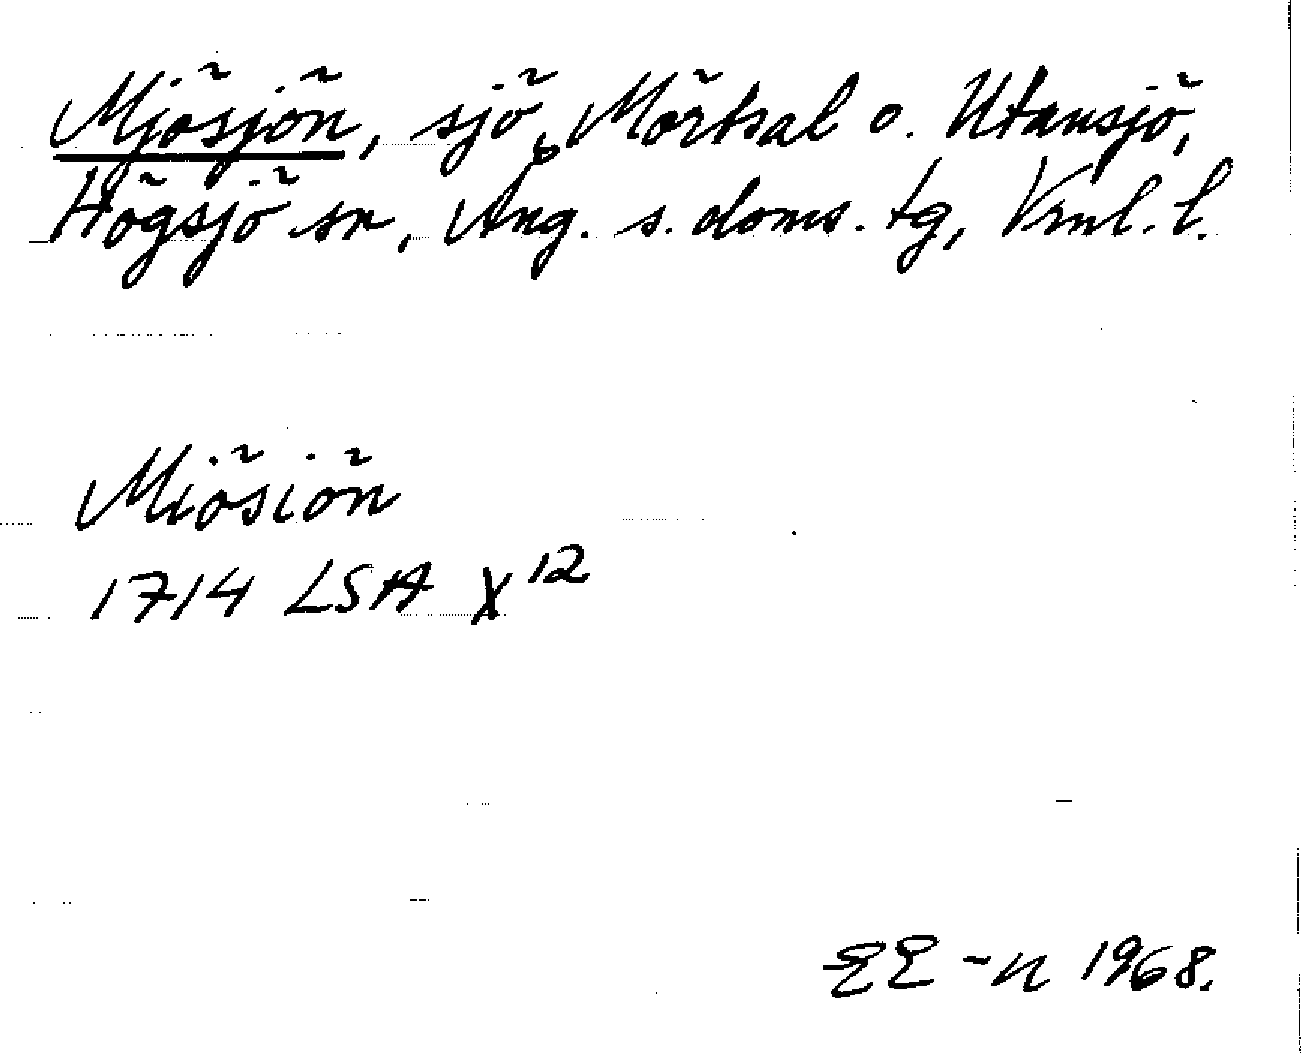 Mjösjön, sjö, Mörtsal o. Utansjö,
Högsjö sn, Ång. s. doms. tg, Vnl. l.
Miösiön
1714 LSA X 12
EE-n 1968.